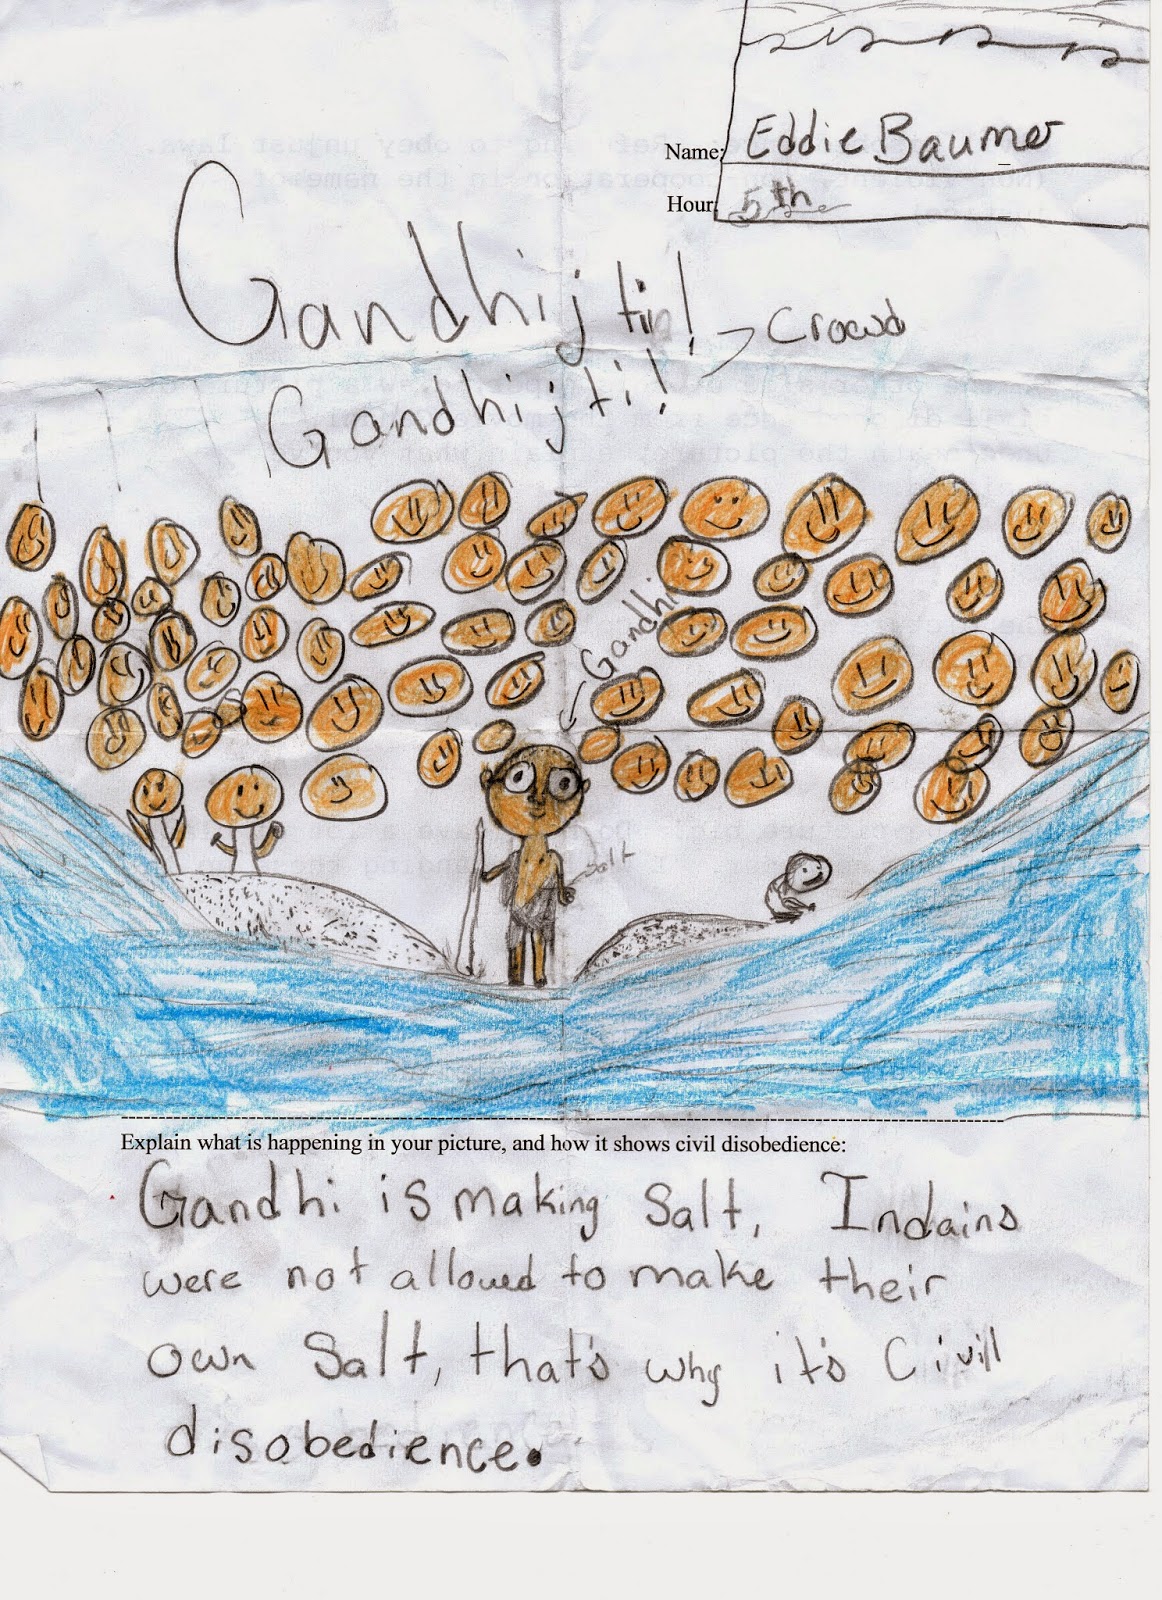 Name: Eddie Baumer
Hour: 5th
Gandhij tin!
Crowd
Gandhijti!
Gandhi
Salt
Explain what is happening in your picture, and how it shows civil disobedience:
Gandhi is making Salt, Indains
were not allowed to make their
own Salt, that's why it's Civill
disobedience.